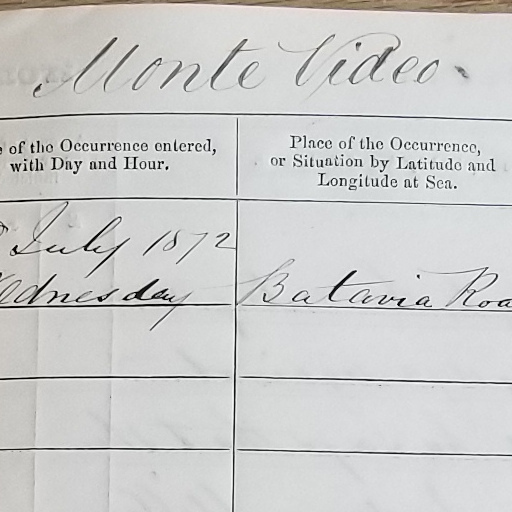 Monte Video.
of the Occurrence entered,
with Day and Hour.
Place of the Occurrence,
or Situation by Latitude and
Longitude at Sea.
July 1872
Wednesday
Batavia Roa